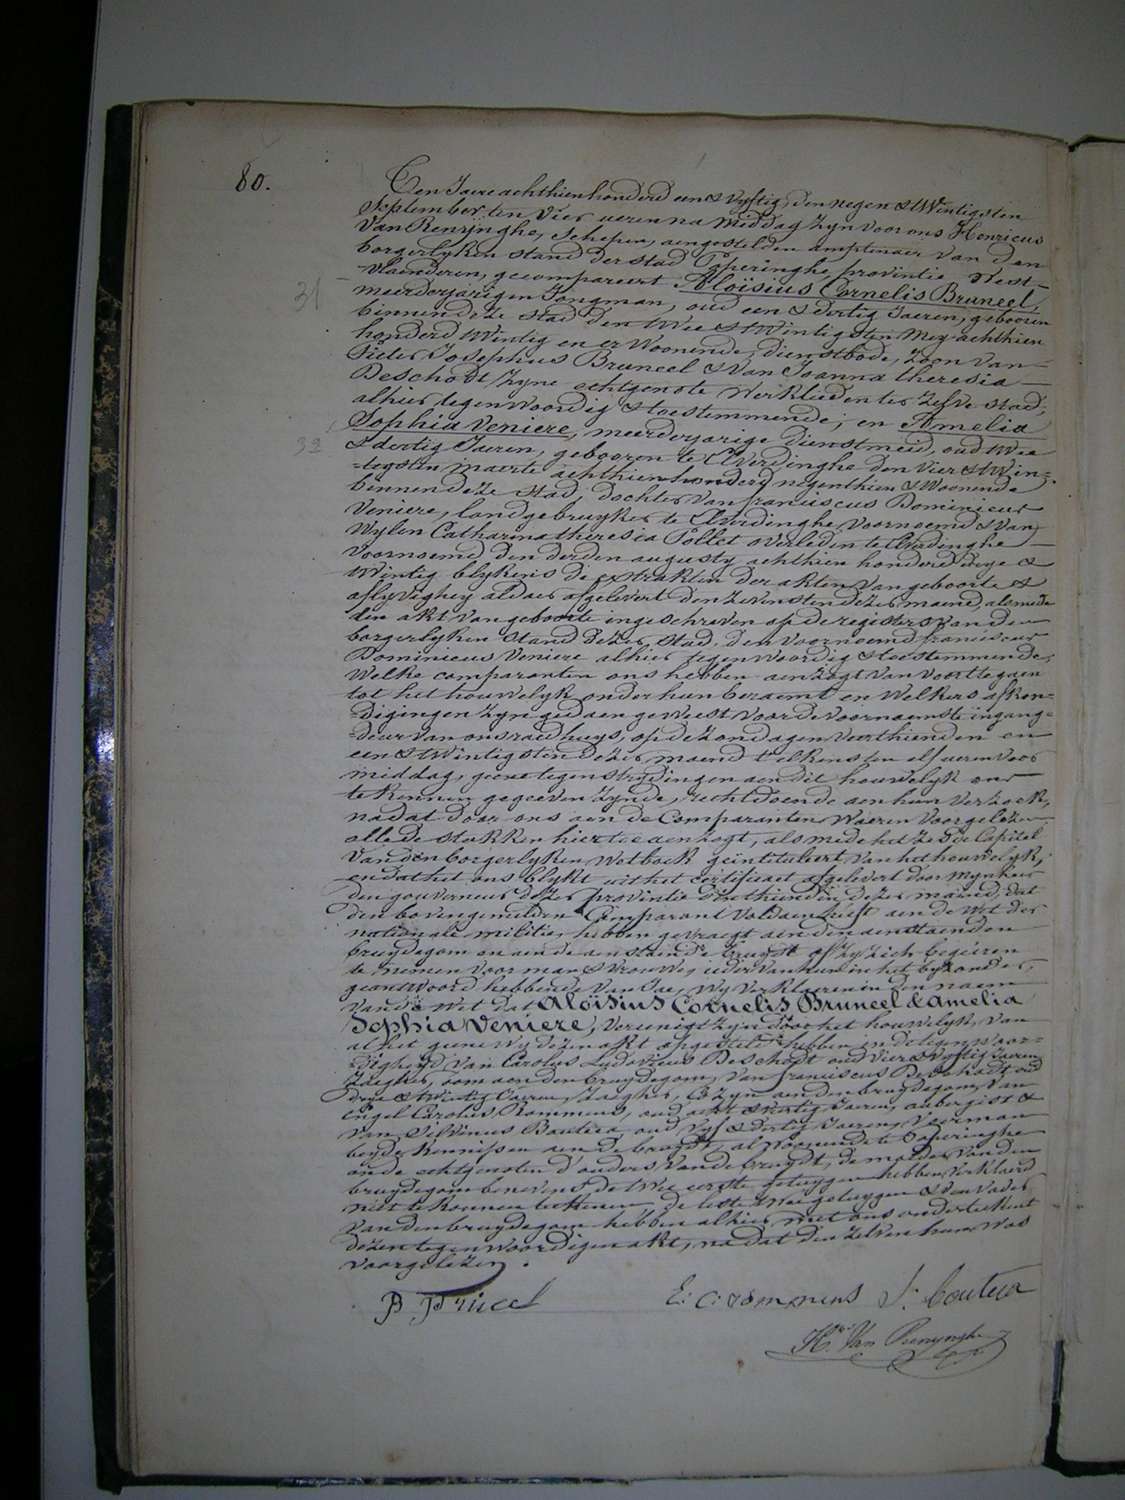 80.
Ten Jaere achthienhonderd een & vyftig, den negen & twintigsten
September, ten vier ueren na middag zyn voor ons Henricus
Van Renynghe, Schepen, aengestelden amptenaer van den
borgerlyken stand der stad Poperinghe, provintie West-
vlaenderen, gecompareert Aloïsius Cornelis Bruneel,
31
meerderjarigen Jongman, oud een & dertig Jaeren, gebooren
binnen deze stad den twee & twintigsten Mey achthien
honderd twintig en er woonende, dienstbode, zoon van
Pieter Josephus Bruneel & van Joanna theresia
Deschodt, zyne echtgenote werklieden ter zelve stad,
alhier tegenwoordig & toestemmende; en Amelia
Sophia Veniere, meerderjarige dienstmeid, oud twee
32
& dertig Jaeren, gebooren te Elverdinghe den vier & twin-
-tigsten maerte achthien honderd negenthien & woonende
binnen deze stad, dochter van franciscus Dominicus
Veniere, landgebruyker te Elverdinghe voornoemd & van
wylen Catharina theresia Pollet overleden te Elverdinghe
voornoemd den derden augusty achthien honderd drye &
twintig blykens de extrakten der akten van geboorte &
aflyvighey aldaer afgelevert den zevensten dezer maend, alsmede
den akt van geboorte ingeschreven op de registers van den
borgerlyken stand dezer stad, den voornoemd franciscus
Dominicus Veniere alhier tegenwoordig & toestemmende;
Welke comparanten ons hebben aenzogt van voort te gaen
tot het houwelyk onder hun beraemt en welkers afkon-
-digingen zyn gedaen geweest voor de voornaemste ingang-
-deur van ons raedhuys, op de zondagen veerthienden en
een & twintigsten dezer maend telkens ten elf ueren voor
middag, geene tegenstrydingen aen dit houwelyk ons
te kennen gegeeven zynde, recht doende aen hun verzoek,
nadat door ons aen de Comparanten waeren voorgelezen
alle de stukken hiertoe aenzogt, als mede het zesde Capitel
van den borgerlyken wetboek geintituleert van het houwelyk,
en dat het ons blykt uit het certificaet afgelevert door mynheer
den gouverneur dezer provintie den thienden dezer maend, dat
den bovengemelden Comparant voldaen heeft aen de wet der
nationale militie, hebben gevraegt aen den aenstaenden
bruydegom en aen de aenstaende bruydt of zy zich begeiren
te nemen voor man & vrouwe, ieder van hun in het byzonder,
geantwoord hebbende van Jae, wy verklaeren in den naem
van de wet dat Aloïsius Cornelis Bruneel & Amelia
Sophia Veniere, vereenigt zyn door het houwelyk, van
al het geene wy dezen akt opgestelt hebben in de tegenwoor-
-digheyd van Carolus Ludovicus Deschodt oud vier & vyftig Jaeren
Zaegher, oom aen den bruydegom, van franciscus Deschodt oud
drye & twintig Jaeren, Zaegher, Cozyn aen den bruydegom, van
Engel Carolus Rommens, oud acht & Jaeren, aubergist &
van Silvinus Bouteca oud vyf & dertig Jaeren, Veerman
beyde kennissen aen de bruydt, al woonende te Poperinghe
ende echtgenoten d'ouders van de bruydt, de moeder van den
bruydegom benevens de twee eerste getuygen hebben verklaerd
niet te konnen teekenen, de leste twee getuygen & den vader
van den bruydegom hebben alhier met ons onderteekent
dezen tegenwoordigen akt, nadat den zelven hun was
voorgelezen.
E: C: rommens S: bouteca
H.ri Van Renynghe